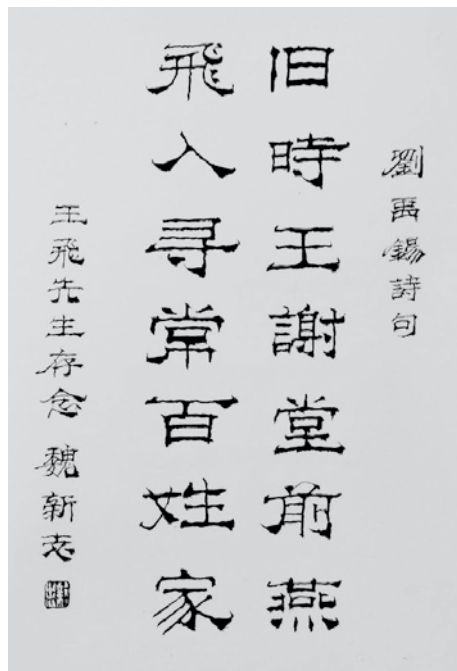 劉禹錫詩句
旧時王謝堂前燕
飛入寻常百姓家
王飛先生存念 魏新志